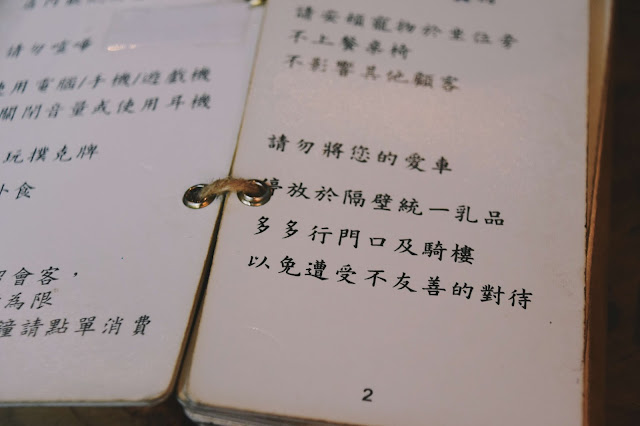 請勿喧嘩
使用電腦/手機/遊戲機
關閉音量或使用耳機
玩撲克牌
小食
會客，
為限
鐘請點單消費
請安頓寵物於坐位旁
不上餐桌椅
不影響其他顧客
請勿將您的愛車
停放於隔壁統一乳品
多多行門口及騎樓
以免遭受不友善的對待
2